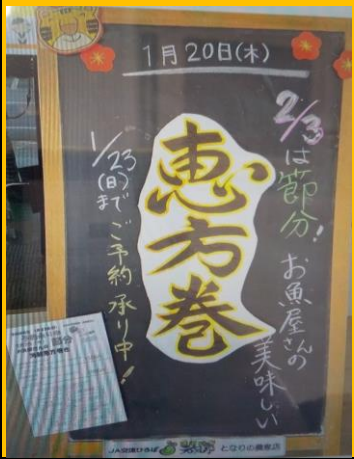 1月20日(木)
2/3は節分!
お魚屋さんの
美味しい
恵方巻
1/23(日)まで
ご予約承り中!
となりの農産店